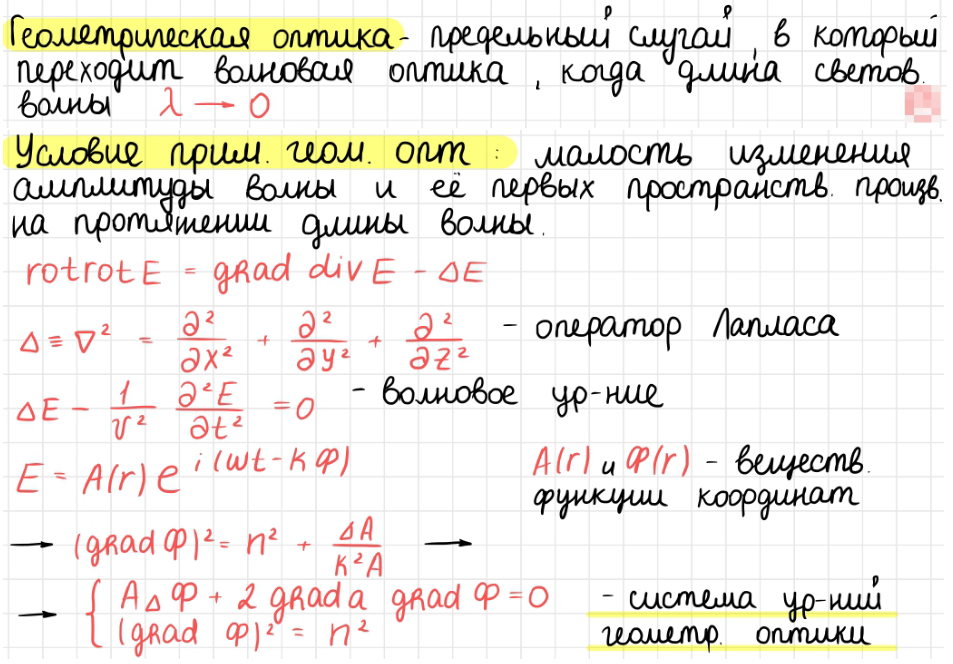 Геометрическая оптика - предельный случай, в который
переходит волновая оптика, когда длина светов.
волны λ → 0
Условие прим. геом. опт : малость изменения
амплитуды волны и её первых пространств. произв.
на протяжении длины волны.
rot rot E = grad div E - ΔE
Δ ≡ ∇² = ∂²/∂x² + ∂²/∂y² + ∂²/∂z² - оператор Лапласа
ΔE - 1/v² ∂²E/∂t² = 0 - волновое ур-ние
E = A(r) e^i(wt-kФ) A(r) и Ф(r) - веществ.
функции координат
→ (grad Ф)² = n² + ΔA/k²A →
→ { AΔФ + 2 grad a grad Ф = 0 - система ур-ний
(grad Ф)² = n² геометр. оптики